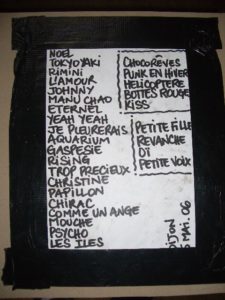 NOEL
TOKYO YAKI
RIMINI
L'AMOUR
JOHNNY
MANU CHAO
ETERNEL
YEAH YEAH
JE PLEURERAIS
AQUARIUM
GASPESIE
RISING
TROP PRECIEUX
CHRISTINE
PAPILLON
CHIRAC
COMME UN ANGE
MOUCHE
PSYCHO
LES ILES
CHOCORÊVES
PUNK EN HIVER
HELICOPTERE
BOTTES ROUGES
KISS
PETITE FILLE
REVANCHE
DT
PETITE VOIX
DIJON
MAI. 06